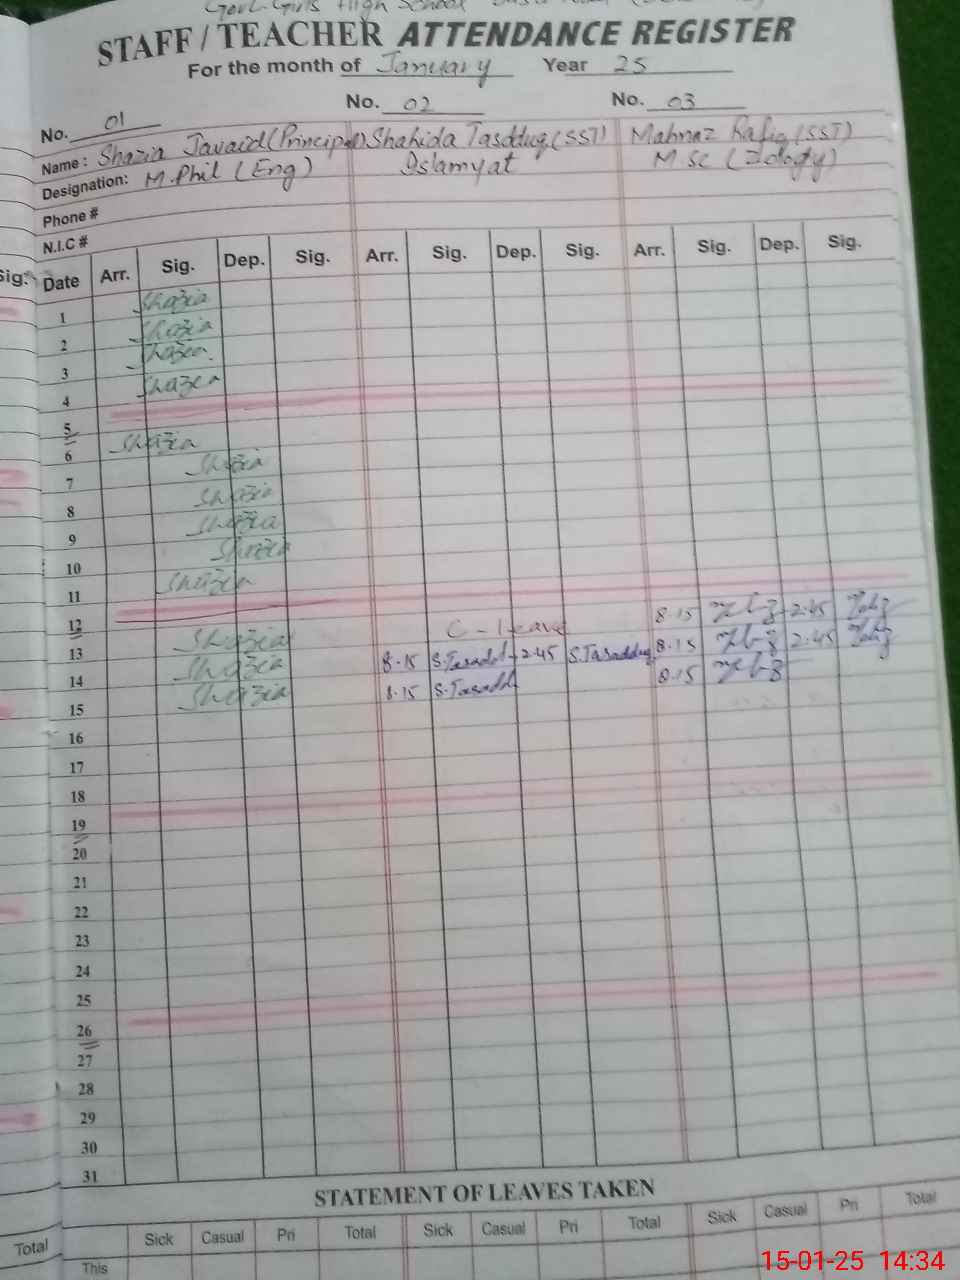 Govt. Girls High School
STAFF / TEACHER ATTENDANCE REGISTER
For the month of January Year 25
No. 01 No. 02 No. 03
Name: Shazia Javaid (Principal) Shahida Tasdduq (SST) Mahnaz Rafiq (SST)
Designation: M.Phil (Eng) Islamyat M.Sc (Zology)
Phone #
N.I.C #
Sig. Date Arr. Sig. Dep. Sig. Arr. Sig. Dep. Sig. Arr. Sig. Dep. Sig.
1 Shazia
2 Shazia
3 Shazia
4 Shazia
5
6 Shazia
7 Shazia
8 Shazia
9 Shazia
10 Shazia
11 Shazia
12
13 Shazia C-Leave 8.15 2.45
14 Shazia 8.15 S.Tasadd 2.45 S.Tasadduq 8.15 2.45
15 Shazia 8.15 S.Tasadd 8.15
16
17
18
19
20
21
22
23
24
25
26
27
28
29
30
31
STATEMENT OF LEAVES TAKEN
Total Sick Casual Pri Total Sick Casual Pri Total Sick Casual Pri Total
This
15-01-25 14:34